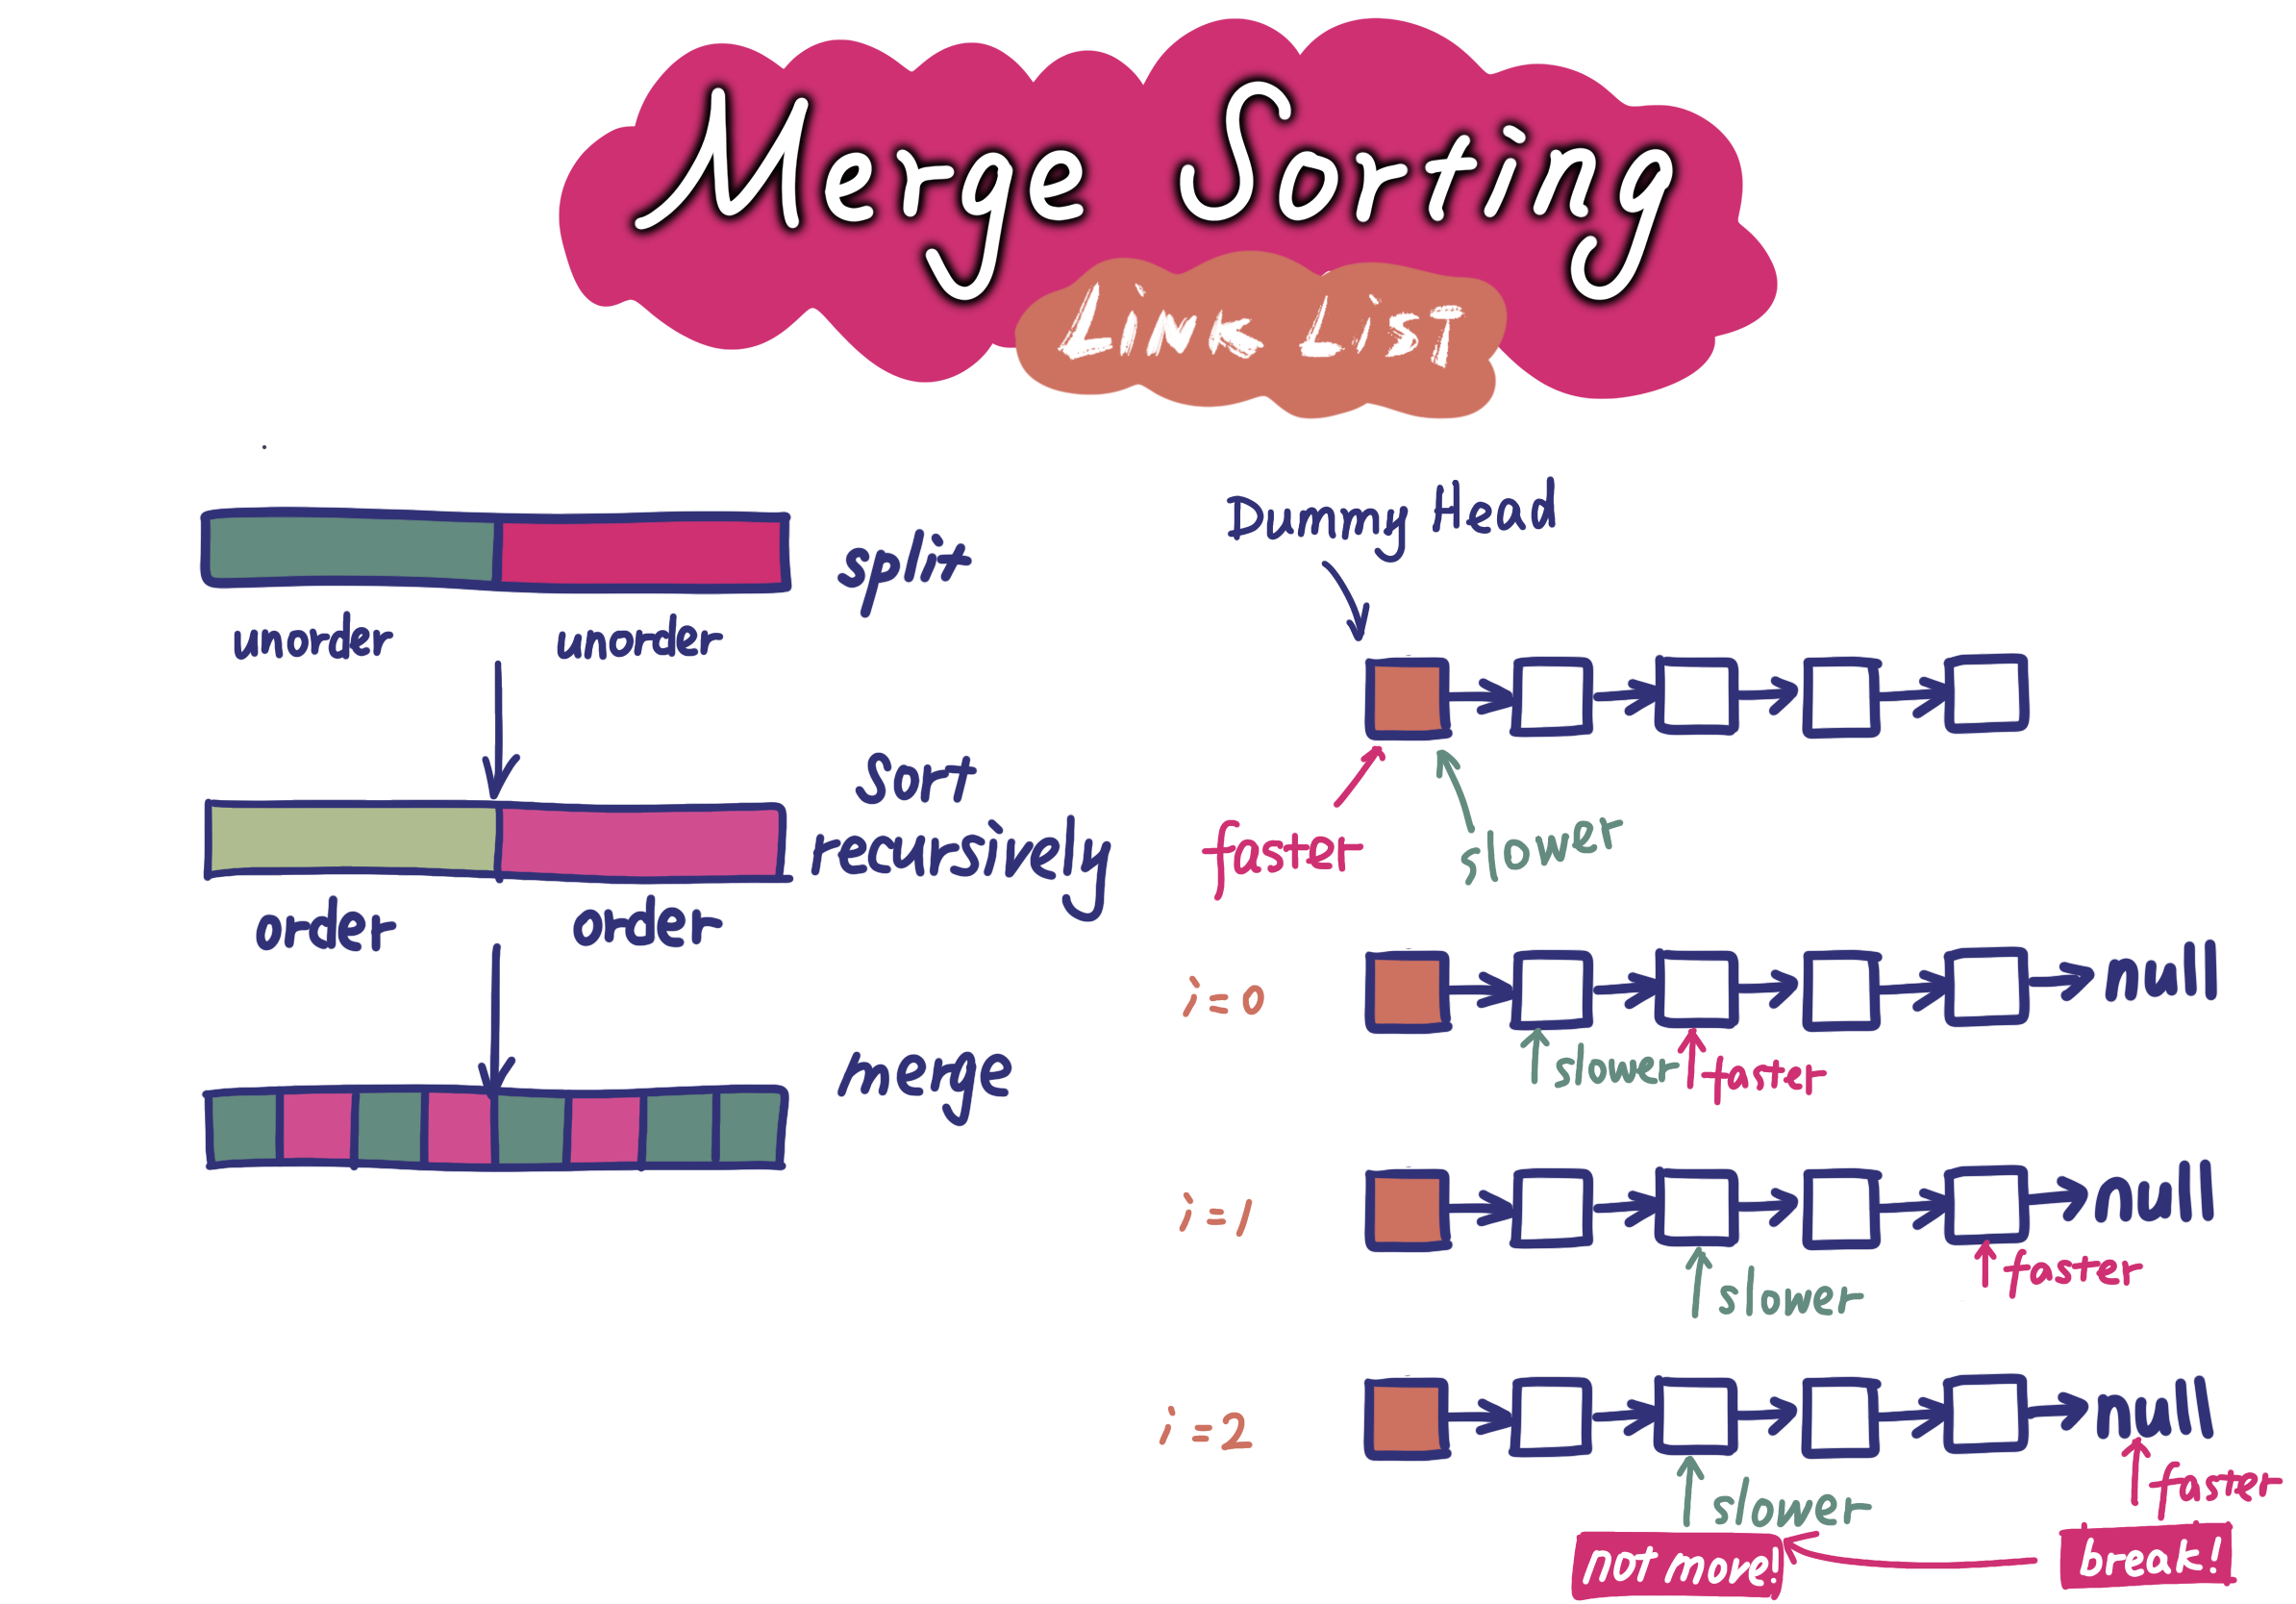 Merge Sorting
LINK LIST
split
unorder unorder
sort
recursively
order order
merge
Dummy Head
faster
slower
i=0
null
slower
faster
i=1
null
slower
faster
i=2
null
slower
faster
not move!
break!